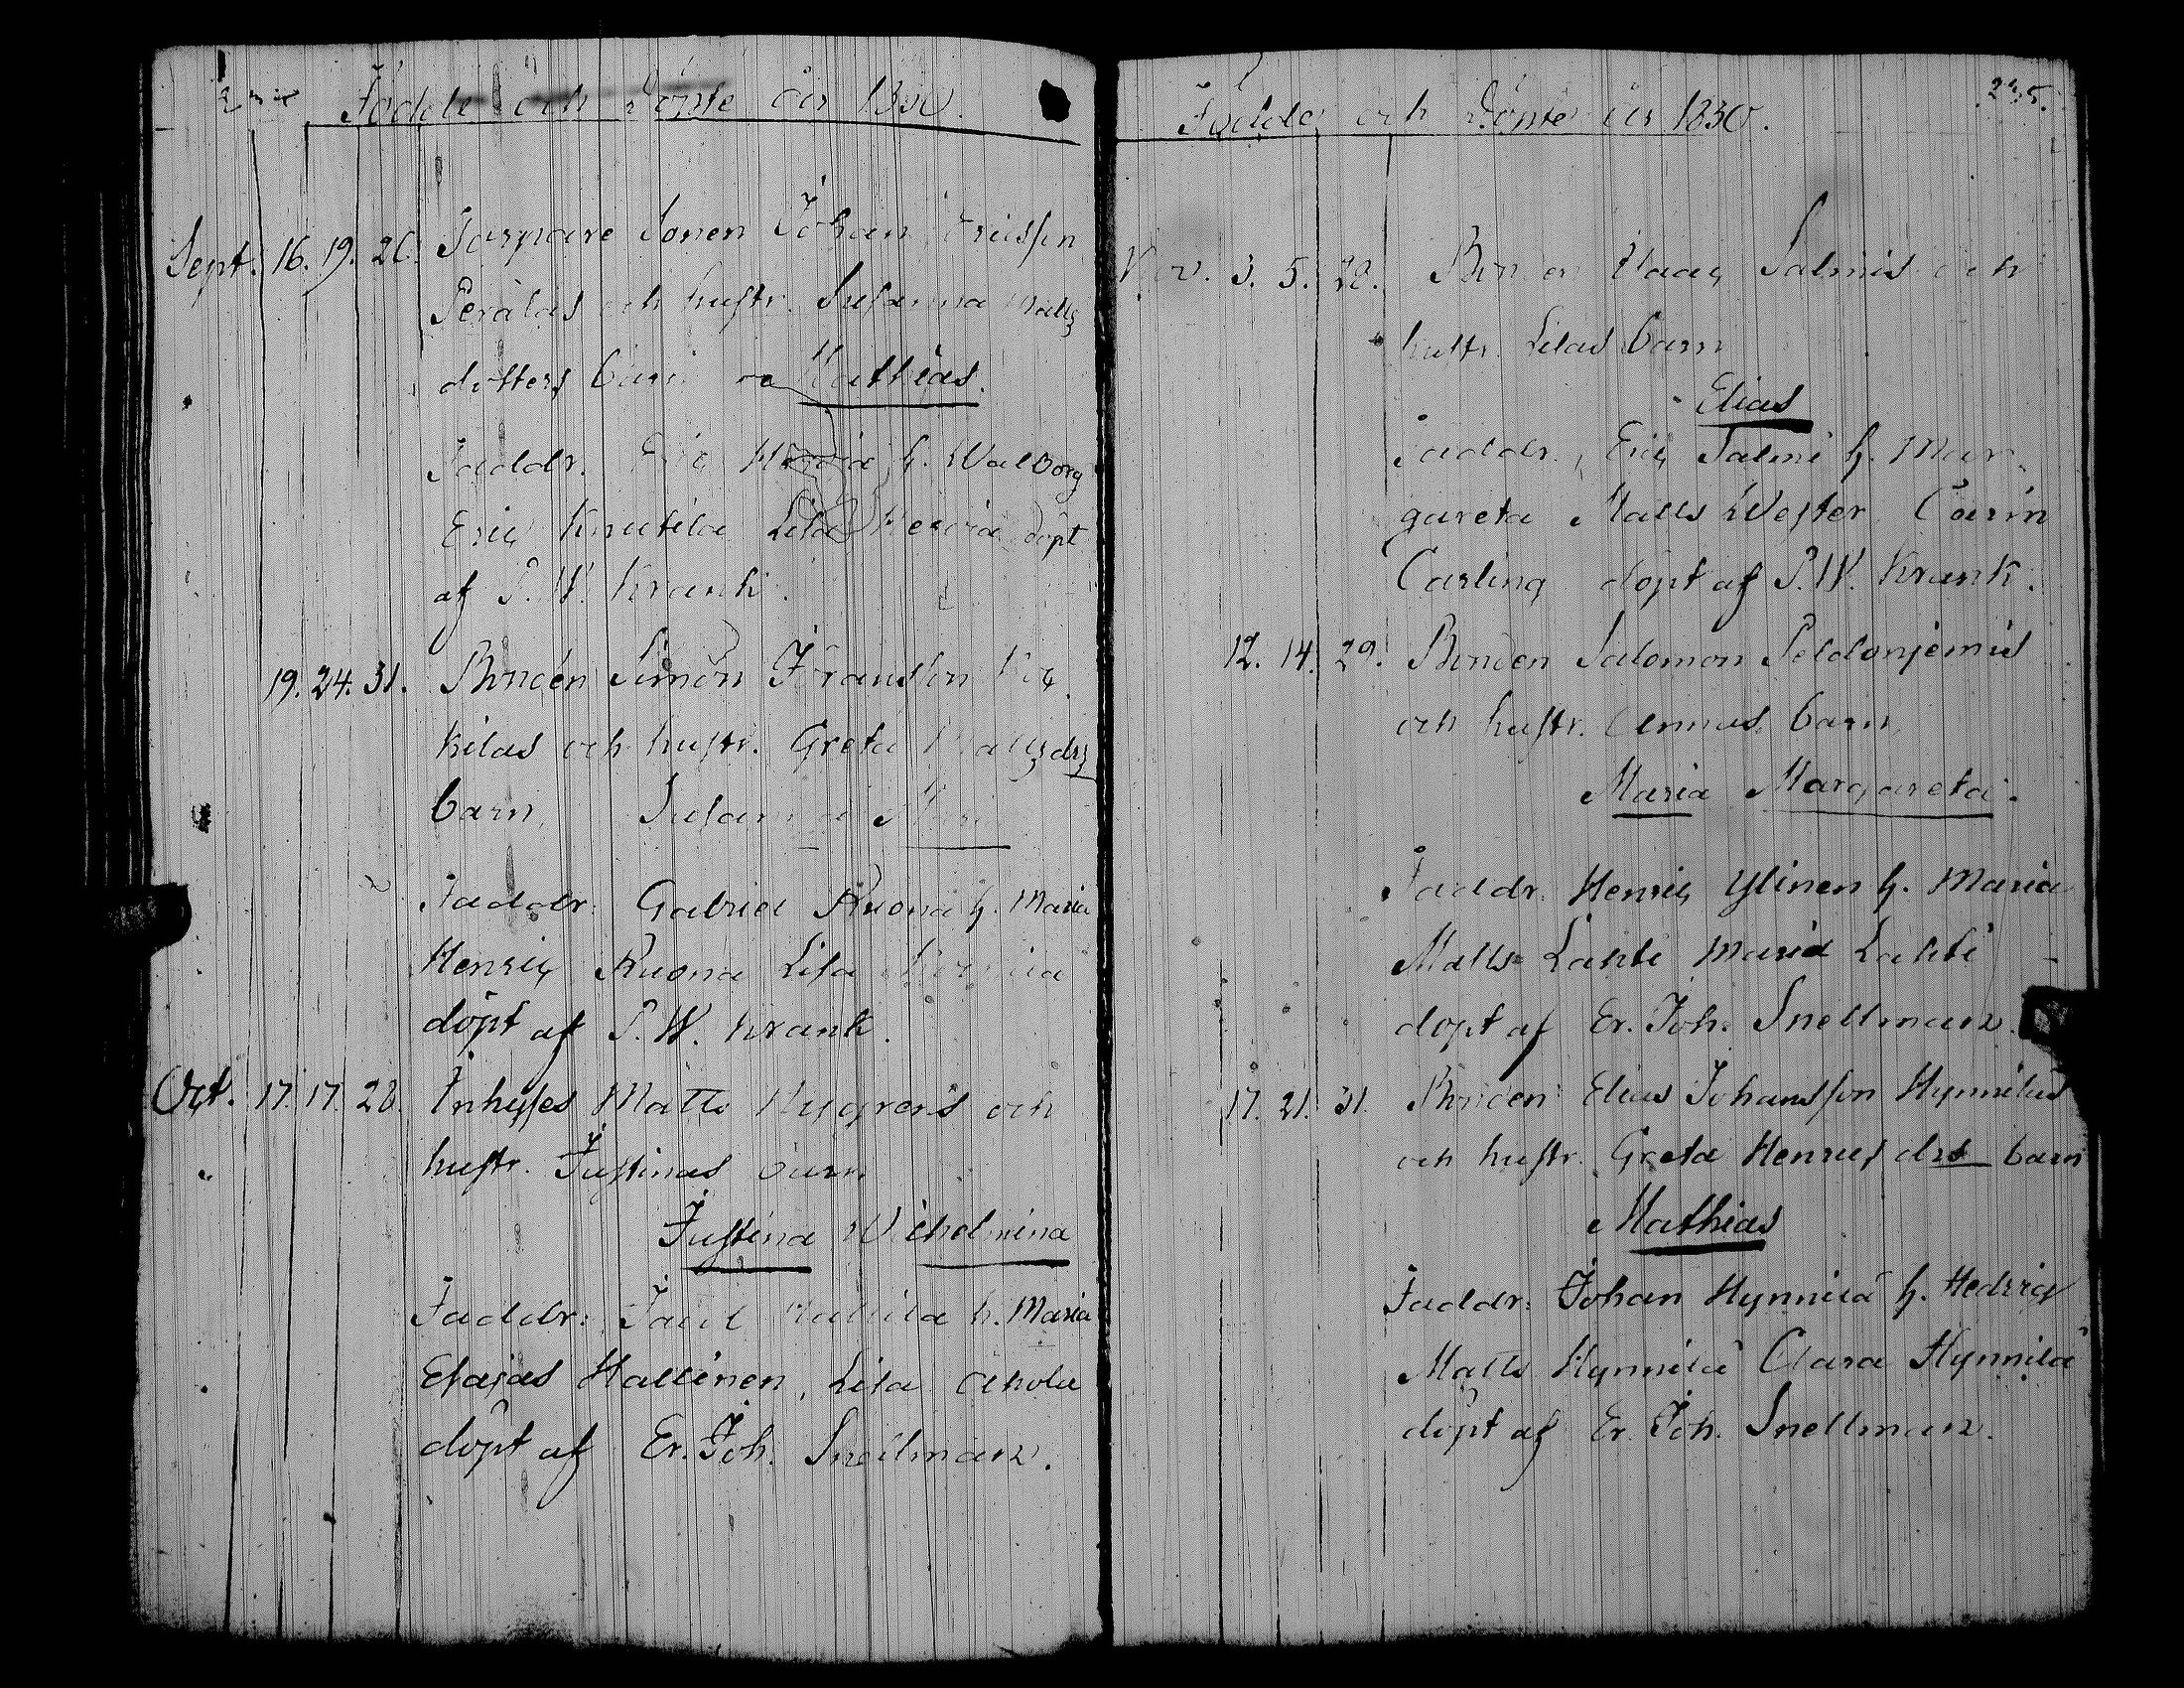 Födde och Döpte år 1830.
Sept. 16. 19. 26. Torpare Sonen Johan Ericsson
Peräläs och hustr. Susanna Matts
dotters barn Mathias.
Faddr. Eric Herviä h. Walborg
Eric Knutila Lisa Herviä döpt
af P. W. Krank.
19. 24. 31. Bonden Simon Johansson
kilas och hustr. Greta Mattsdrs
barn Susanna Maria
Faddr. Gabriel Ruona h. Maria
Henric Ruona Lisa
döpt af P. W. Krank.
Oct. 17. 17. 28. Inhyses Matts Nygrens och
hustr. Justinas barn
Justina Wilhelmina
Faddr: h. Maria
Esajas Hallinen, Lisa Ahola
döpt af Er. Joh. Snellman.
245.
Födde och Döpte år 1830.
Nov. 3. 5. 28. Bonden Isaac Salmis och
hustr. Lisas barn
Elias
Faddr. Eric Salmi h. Mar
gareta Matts Wester Carin
Carling döpt af P. W. Krank.
12. 14. 29. Bonden Salomon Peldoniemis
och hustr. Annas barn
Maria Margareta.
Faddr. Henric Ylinen h. Maria
Matts Lahti Maria Lahti
döpt af Er. Joh. Snellman.
17. 21. 31. Bonden Elias Johansson Hynniläs
och hustr. Greta Henrics drs barn
Mathias
Faddr: Johan Hynnilä h. Hedvig
Matts Hynnilä Clara Hynnilä
döpt af Er. Joh. Snellman.